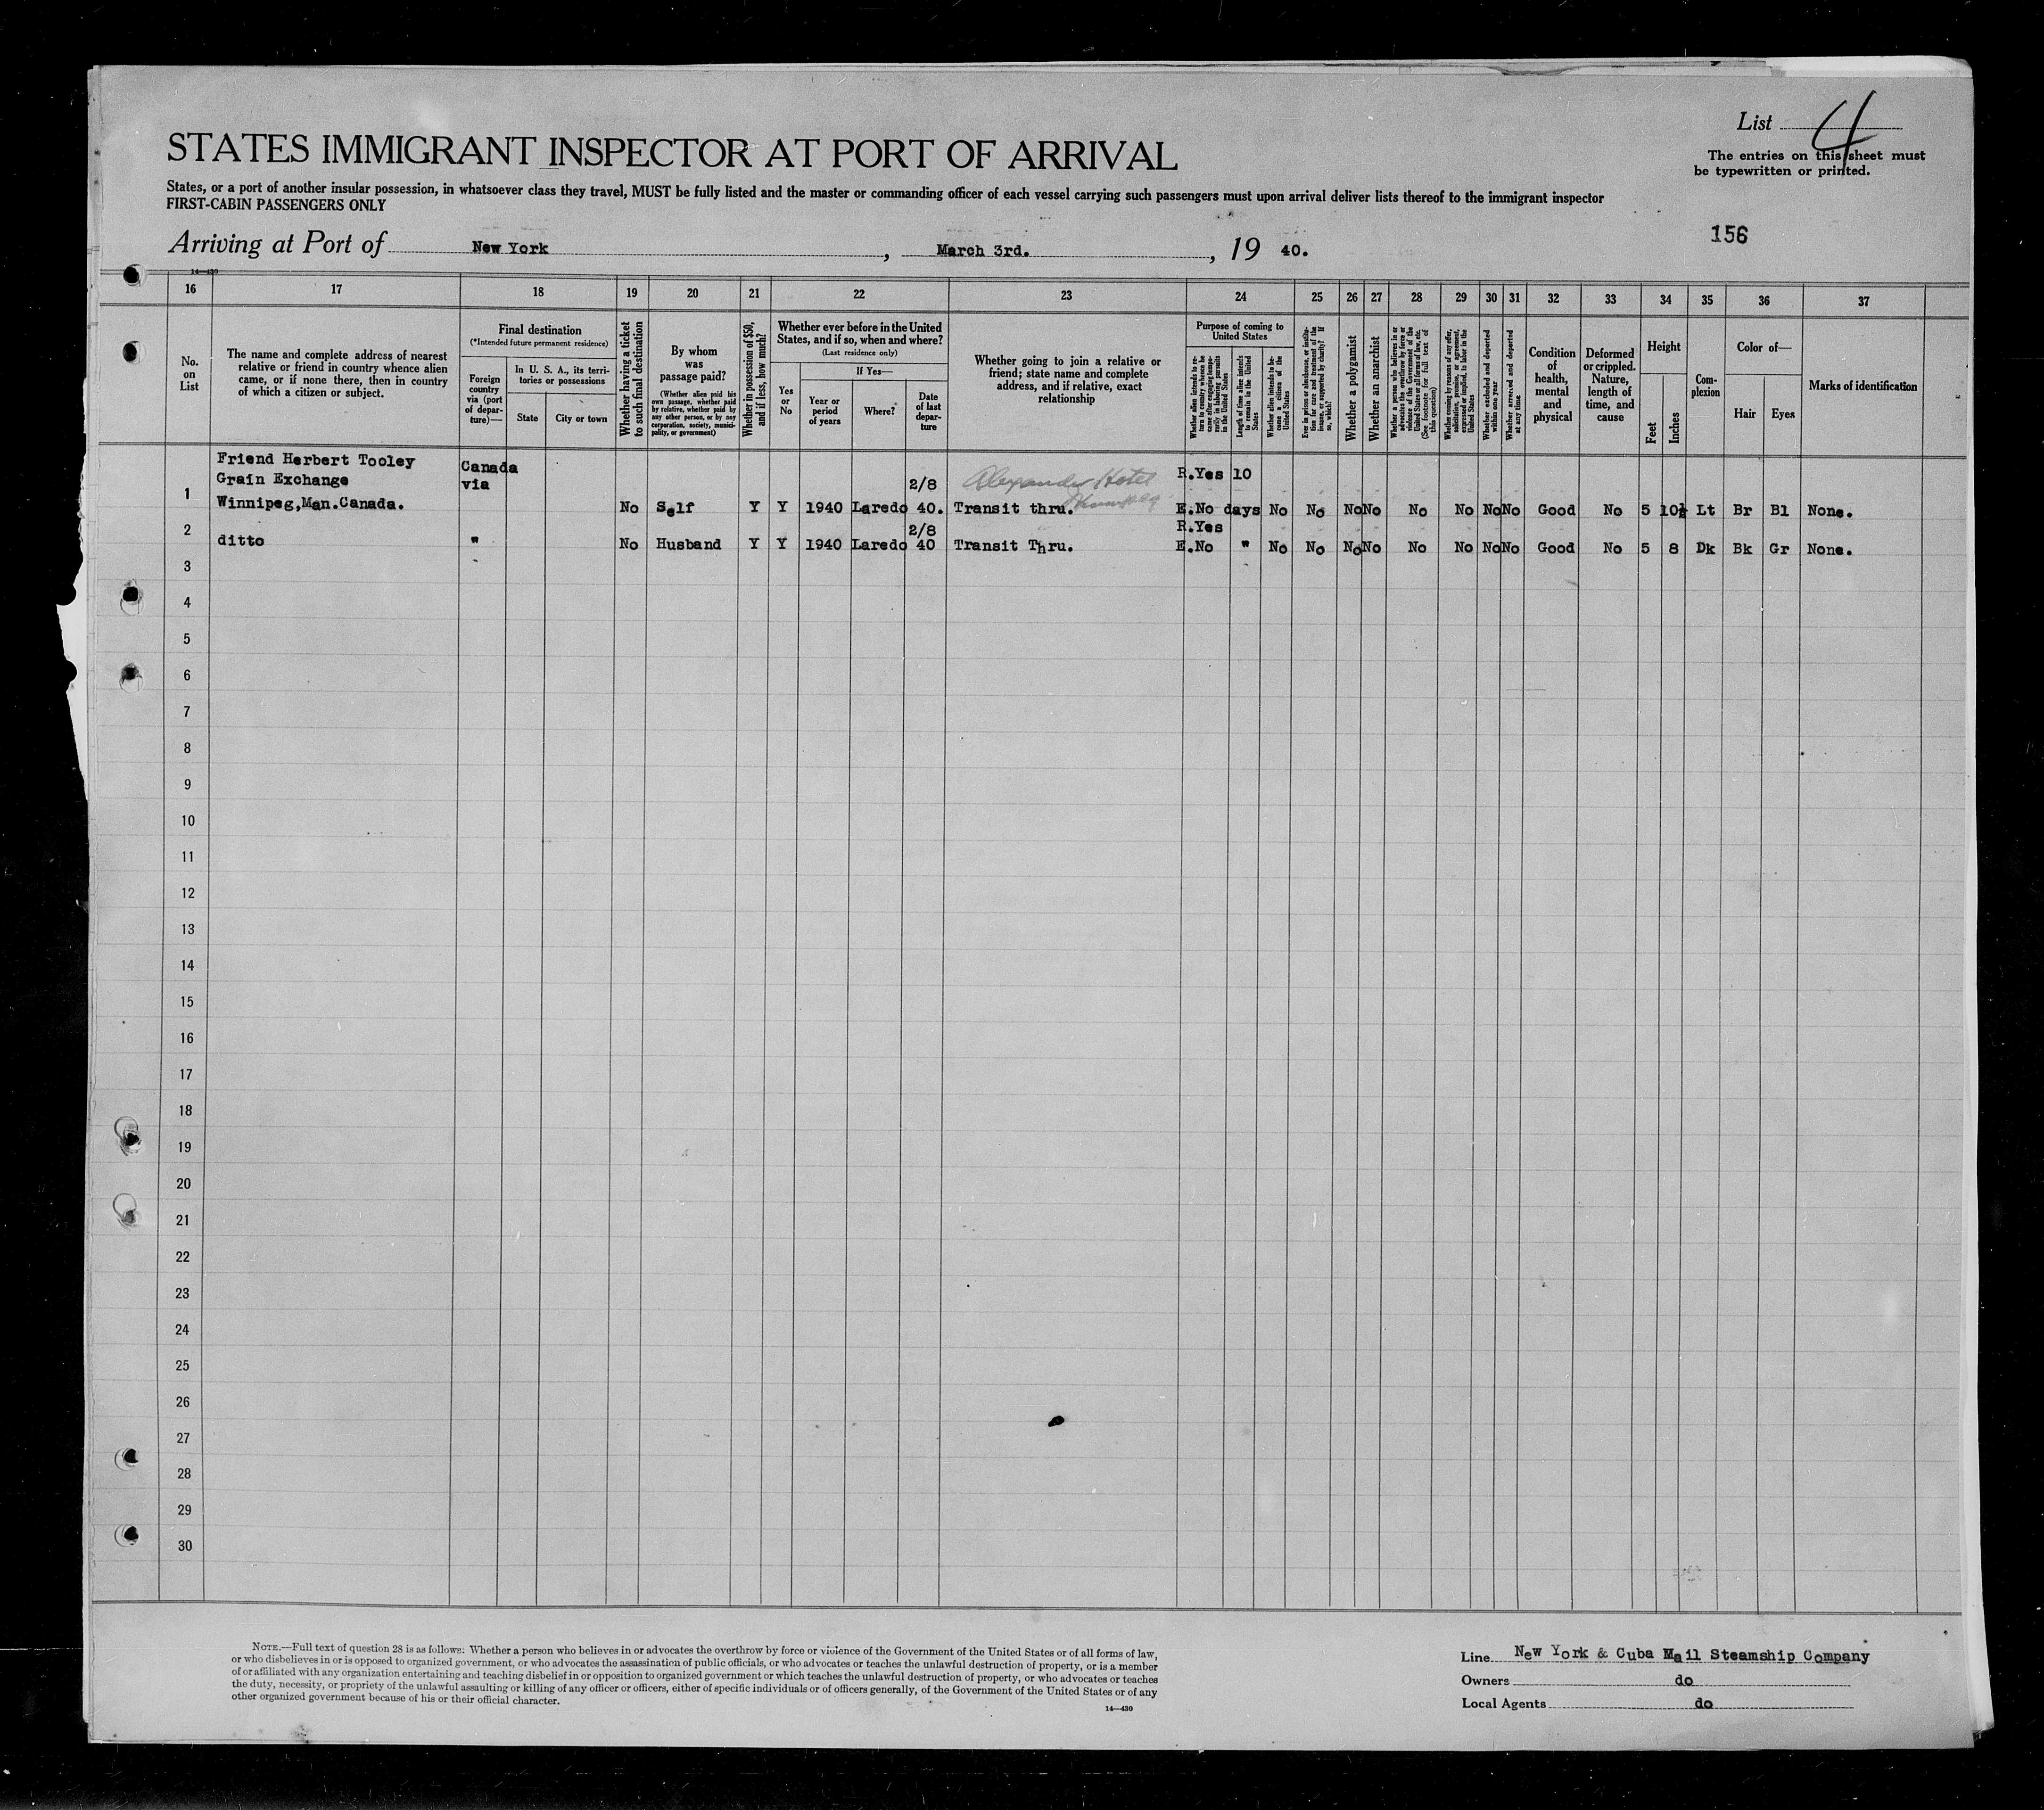 List 4
The entries on this sheet must
be typewritten or printed.
STATES IMMIGRANT INSPECTOR AT PORT OF ARRIVAL
States, or a port of another insular possession, in whatsoever class they travel, MUST be fully listed and the master or commanding officer of each vessel carrying such passengers must upon arrival deliver lists thereof to the immigrant inspector
FIRST-CABIN PASSENGERS ONLY
156
Arriving at Port of New York, March 3rd., 19 40.
14—430
16 17 18 19 20 21 22 23 24 25 26 27 28 29 30 31 32 33 34 35 36 37
No.
on
List
The name and complete address of nearest
relative or friend in country whence alien
came, or if none there, then in country
of which a citizen or subject.
Final destination
(*Intended future permanent residence)
Foreign
country
via (port
of depar-
ture)—
In U. S. A., its terri-
tories or possessions
State
City or town
Whether having a ticket
to such final destination
By whom
was
passage paid?
(Whether alien paid his
own passage, whether paid
by relative, whether paid by
any other person, or by any
corporation, society, munici-
pality, or government)
Whether in possession of $50,
and if less, how much?
Whether ever before in the United
States, and if so, when and where?
(Last residence only)
Yes
or
No
If Yes—
Year or
period
of years
Where?
Date
of last
depar-
ture
Whether going to join a relative or
friend; state name and complete
address, and if relative, exact
relationship
Purpose of coming to
United States
Whether alien intends to re-
turn to country whence he
came after engaging tempo-
rarily in laboring pursuits
in the United States
Length of time alien intends
to remain in the United
States
Whether alien intends to be-
come a citizen of the
United States
Ever in prison or almshouse, or institu-
tion for care and treatment of the
insane, or supported by charity? If
so, which?
Whether a polygamist
Whether an anarchist
Whether a person who believes in or
advocates the overthrow by force or
violence of the Government of the
United States or all forms of law, etc.
(See footnote for full text of
this question)
Whether coming by reasons of any offer,
solicitation, promise, or agreement,
expressed or implied, to labor in the
United States
Whether excluded and deported
within one year
Whether arrested and deported
at any time
Condition
of
health,
mental
and
physical
Deformed
or crippled.
Nature,
length of
time, and
cause
Height
Feet
Inches
Com-
plexion
Color of—
Hair
Eyes
Marks of identification
Friend Herbert Tooley
Grain Exchange Canada via 2/8 Alexander Hotel R.Yes 10
1 Winnipeg,Man.Canada. No Self Y Y 1940 Laredo 40. Transit thru. E.No days No No No No No No No No Good No 5 10½ Lt Br Bl None.
2/8 R.Yes
2 ditto " No Husband Y Y 1940 Laredo 40 Transit Thru. E.No " No No No No No No No No Good No 5 8 Dk Bk Gr None.
3
4
5
6
7
8
9
10
11
12
13
14
15
16
17
18
19
20
21
22
23
24
25
26
27
28
29
30
NOTE.—Full text of question 28 is as follows: Whether a person who believes in or advocates the overthrow by force or violence of the Government of the United States or of all forms of law,
or who disbelieves in or is opposed to organized government, or who advocates the assassination of public officials, or who advocates or teaches the unlawful destruction of property, or is a member
of or affiliated with any organization entertaining and teaching disbelief in or opposition to organized government or which teaches the unlawful destruction of property, or who advocates or teaches
the duty, necessity, or propriety of the unlawful assaulting or killing of any officer or officers, either of specific individuals or of officers generally, of the Government of the United States or of any
other organized government because of his or their official character.
14—430
Line New York & Cuba Mail Steamship Company
Owners do
Local Agents do